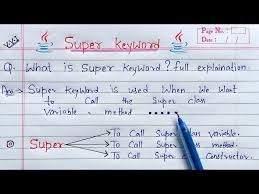 V.V.I
Super Keyword
Page No.:
Date: / /
Q. What is Super Keyword? full explaination.
Ans → Super Keyword is used When We want
to Call the Super class
Variable, method .....
Super
To Call Super Class Variable.
To Call Super Class method.
To Call Super Constructor.